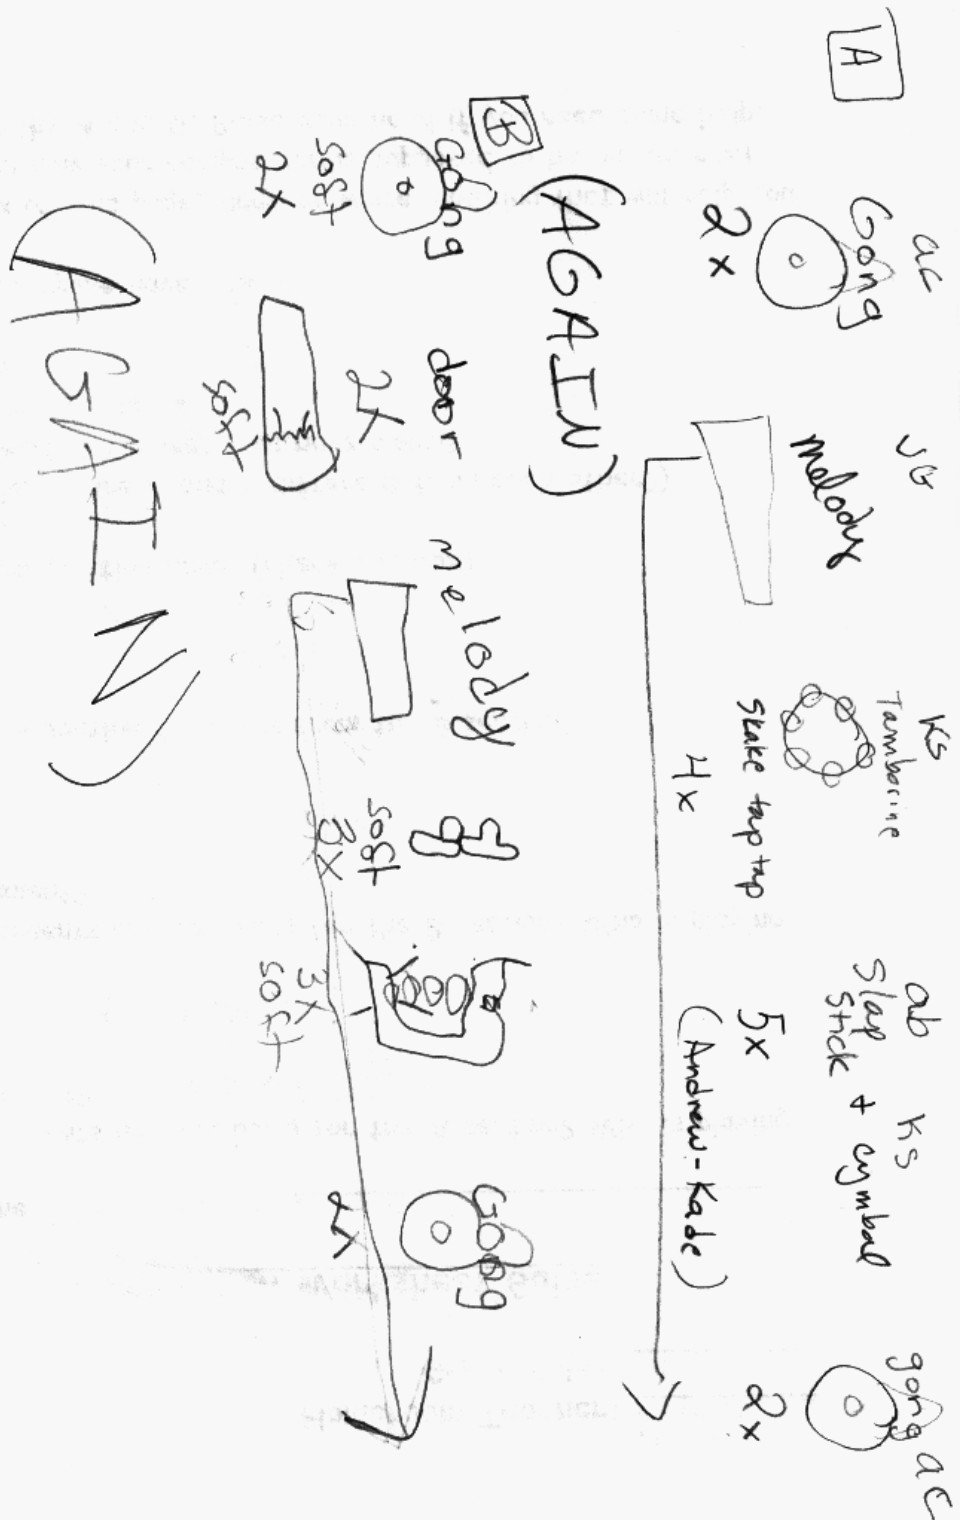 A
ac
Gong
2x
JG
melody
KS
Tamborine
Skake tap tap
4x
ab KS
Slap stick + cymbal
5x
(Andrew-Kade)
gong ac
2x
(AGAIN)
B
Gong
soft
2x
door
2x
soft
melody
soft
3x
3x
soft
Gong
2x
(AGAIN)